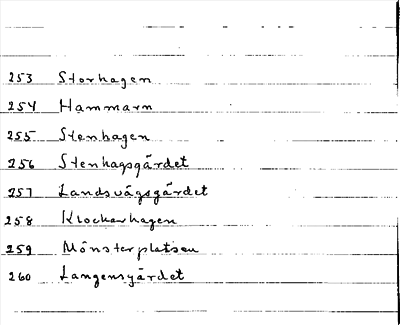 253 Storhagen
254 Hammarn
255 Stenhagen
256 Stenhagsgärdet
257 Landsvägsgärdet
258 Klockarhagen
259 Mönsterplatsen
260 Langensgärdet